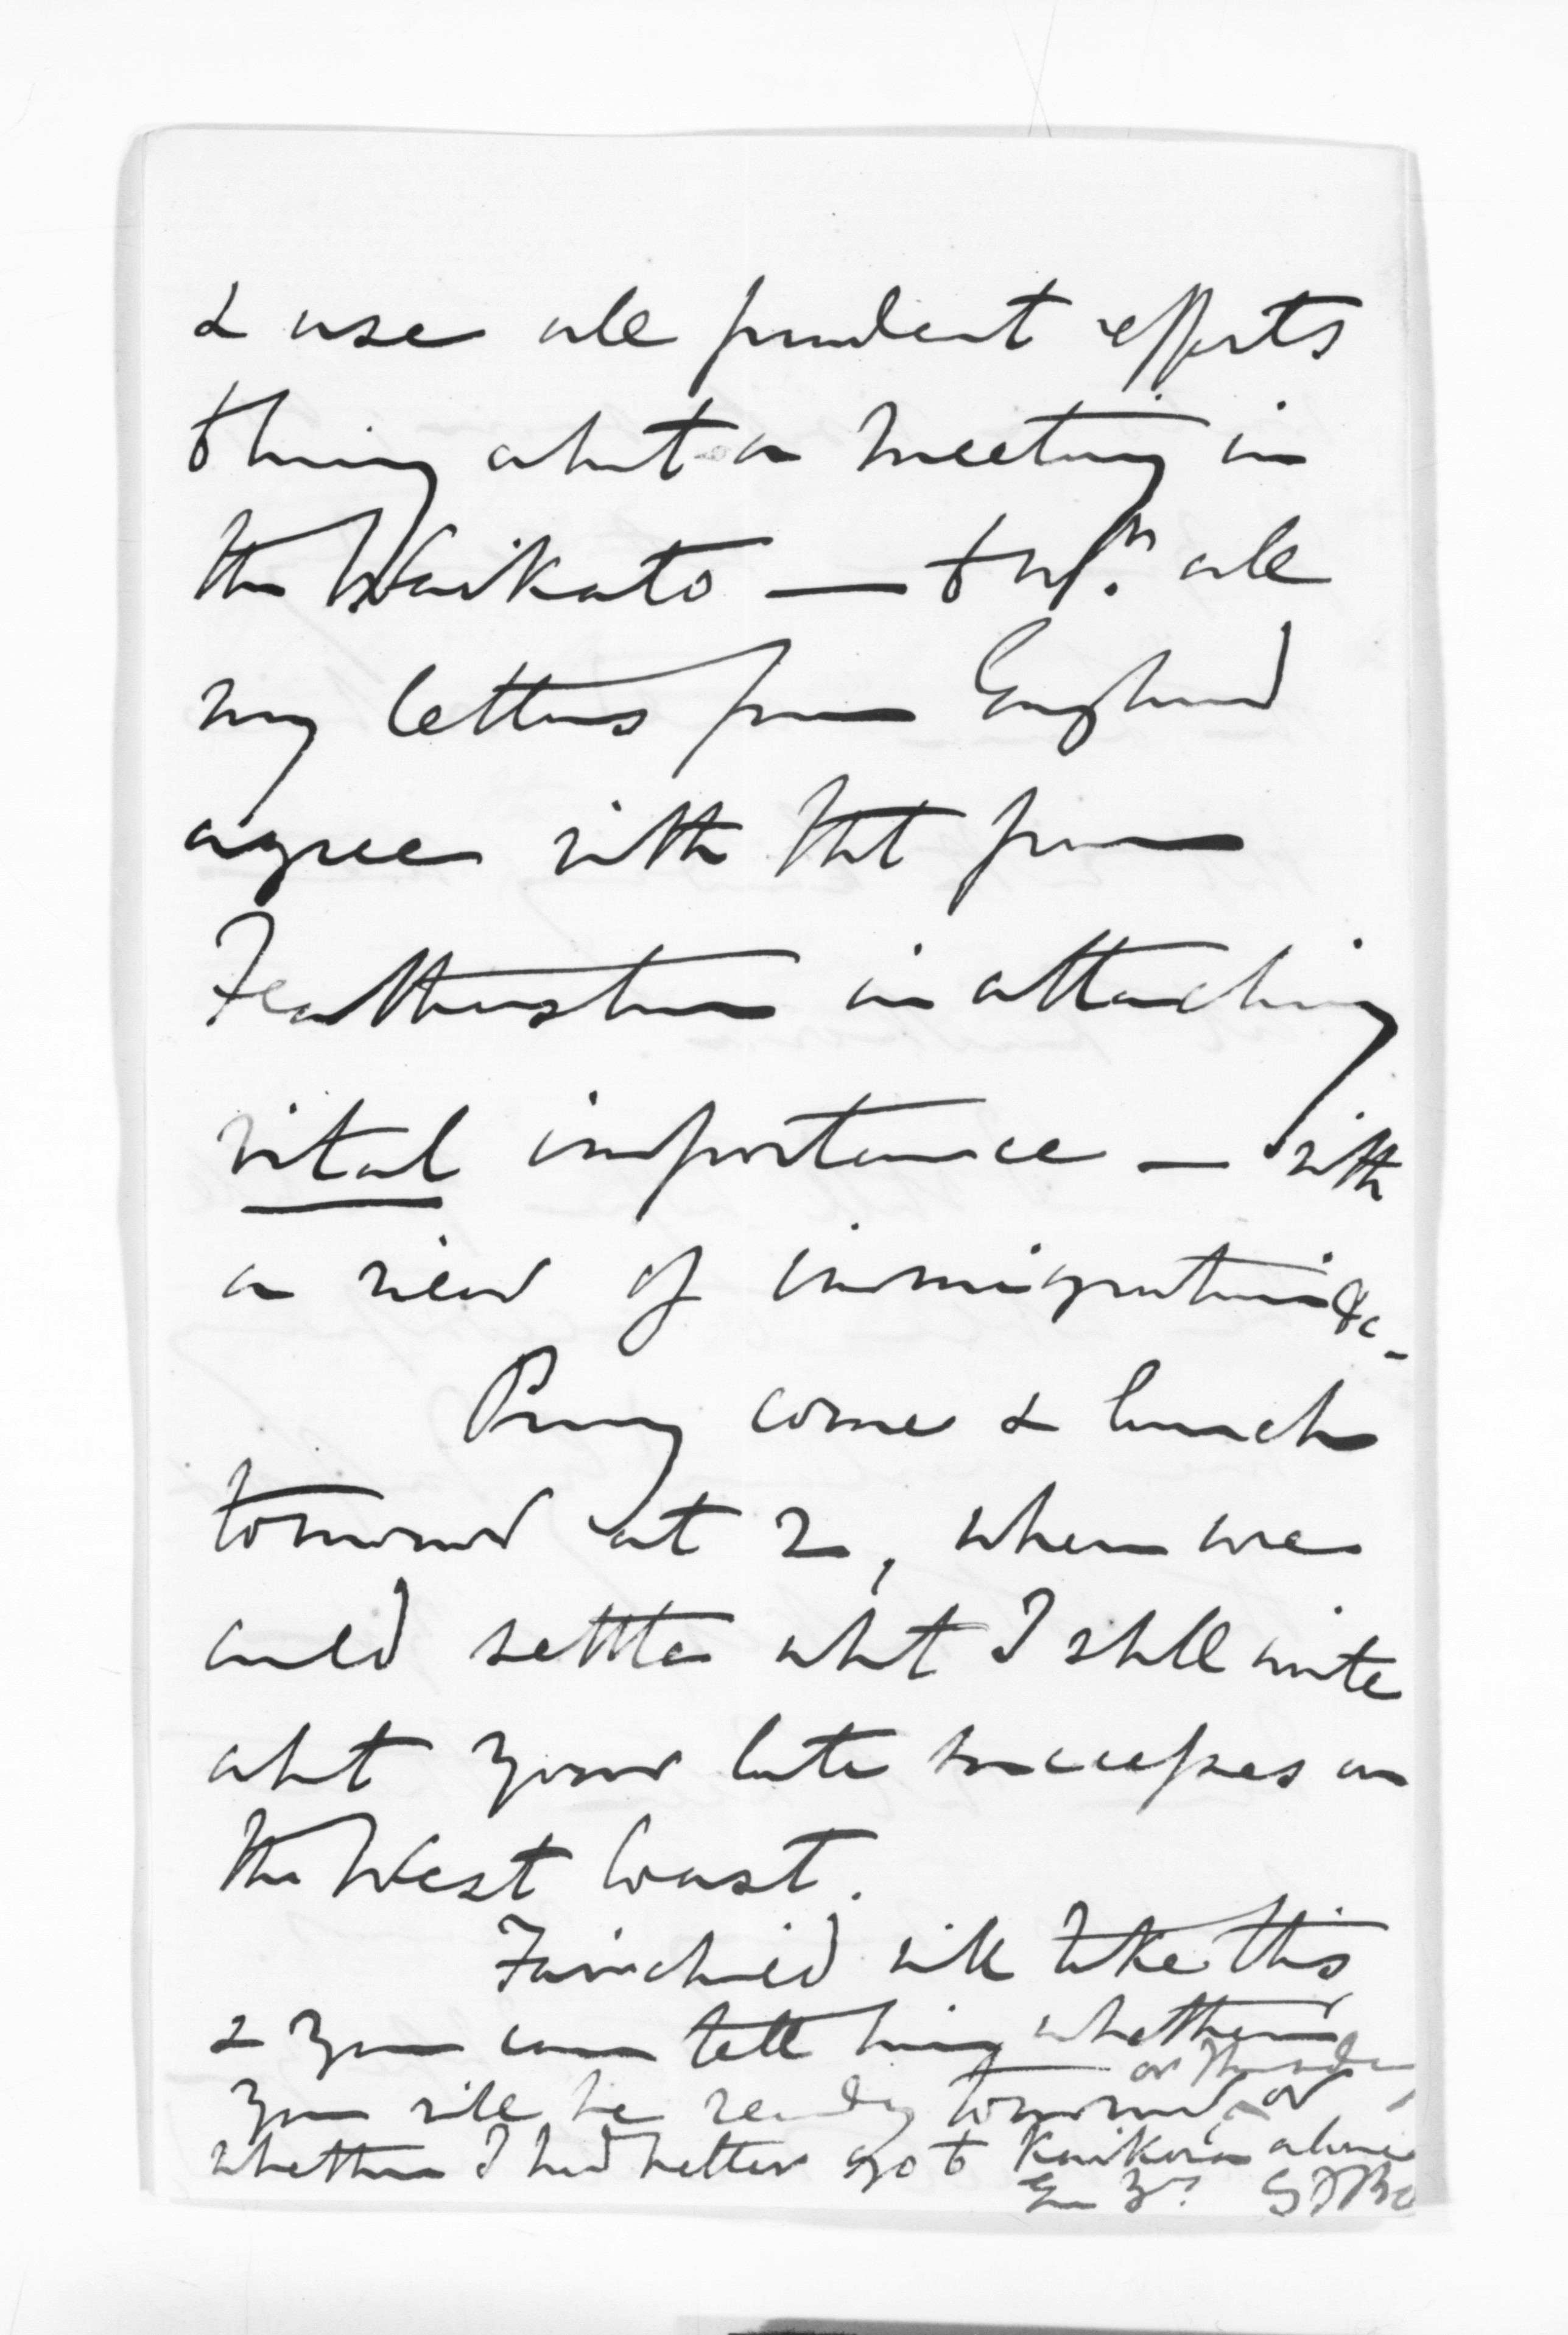 & use all prudent efforts
to bring about a meeting in
the Waikato — to wh. all
my letters from England
agree with that from
Featherston in attaching
vital importance — with
a view of immigration &c -
Pray come & lunch
tomorrow at 2, when we
could settle what I shall write
about your late successes on
the West Coast.
Fairchild will take this
& you can tell him whether
or Thursday
you will be ready tomorrow, or
whether I had better go to Kaikora alone